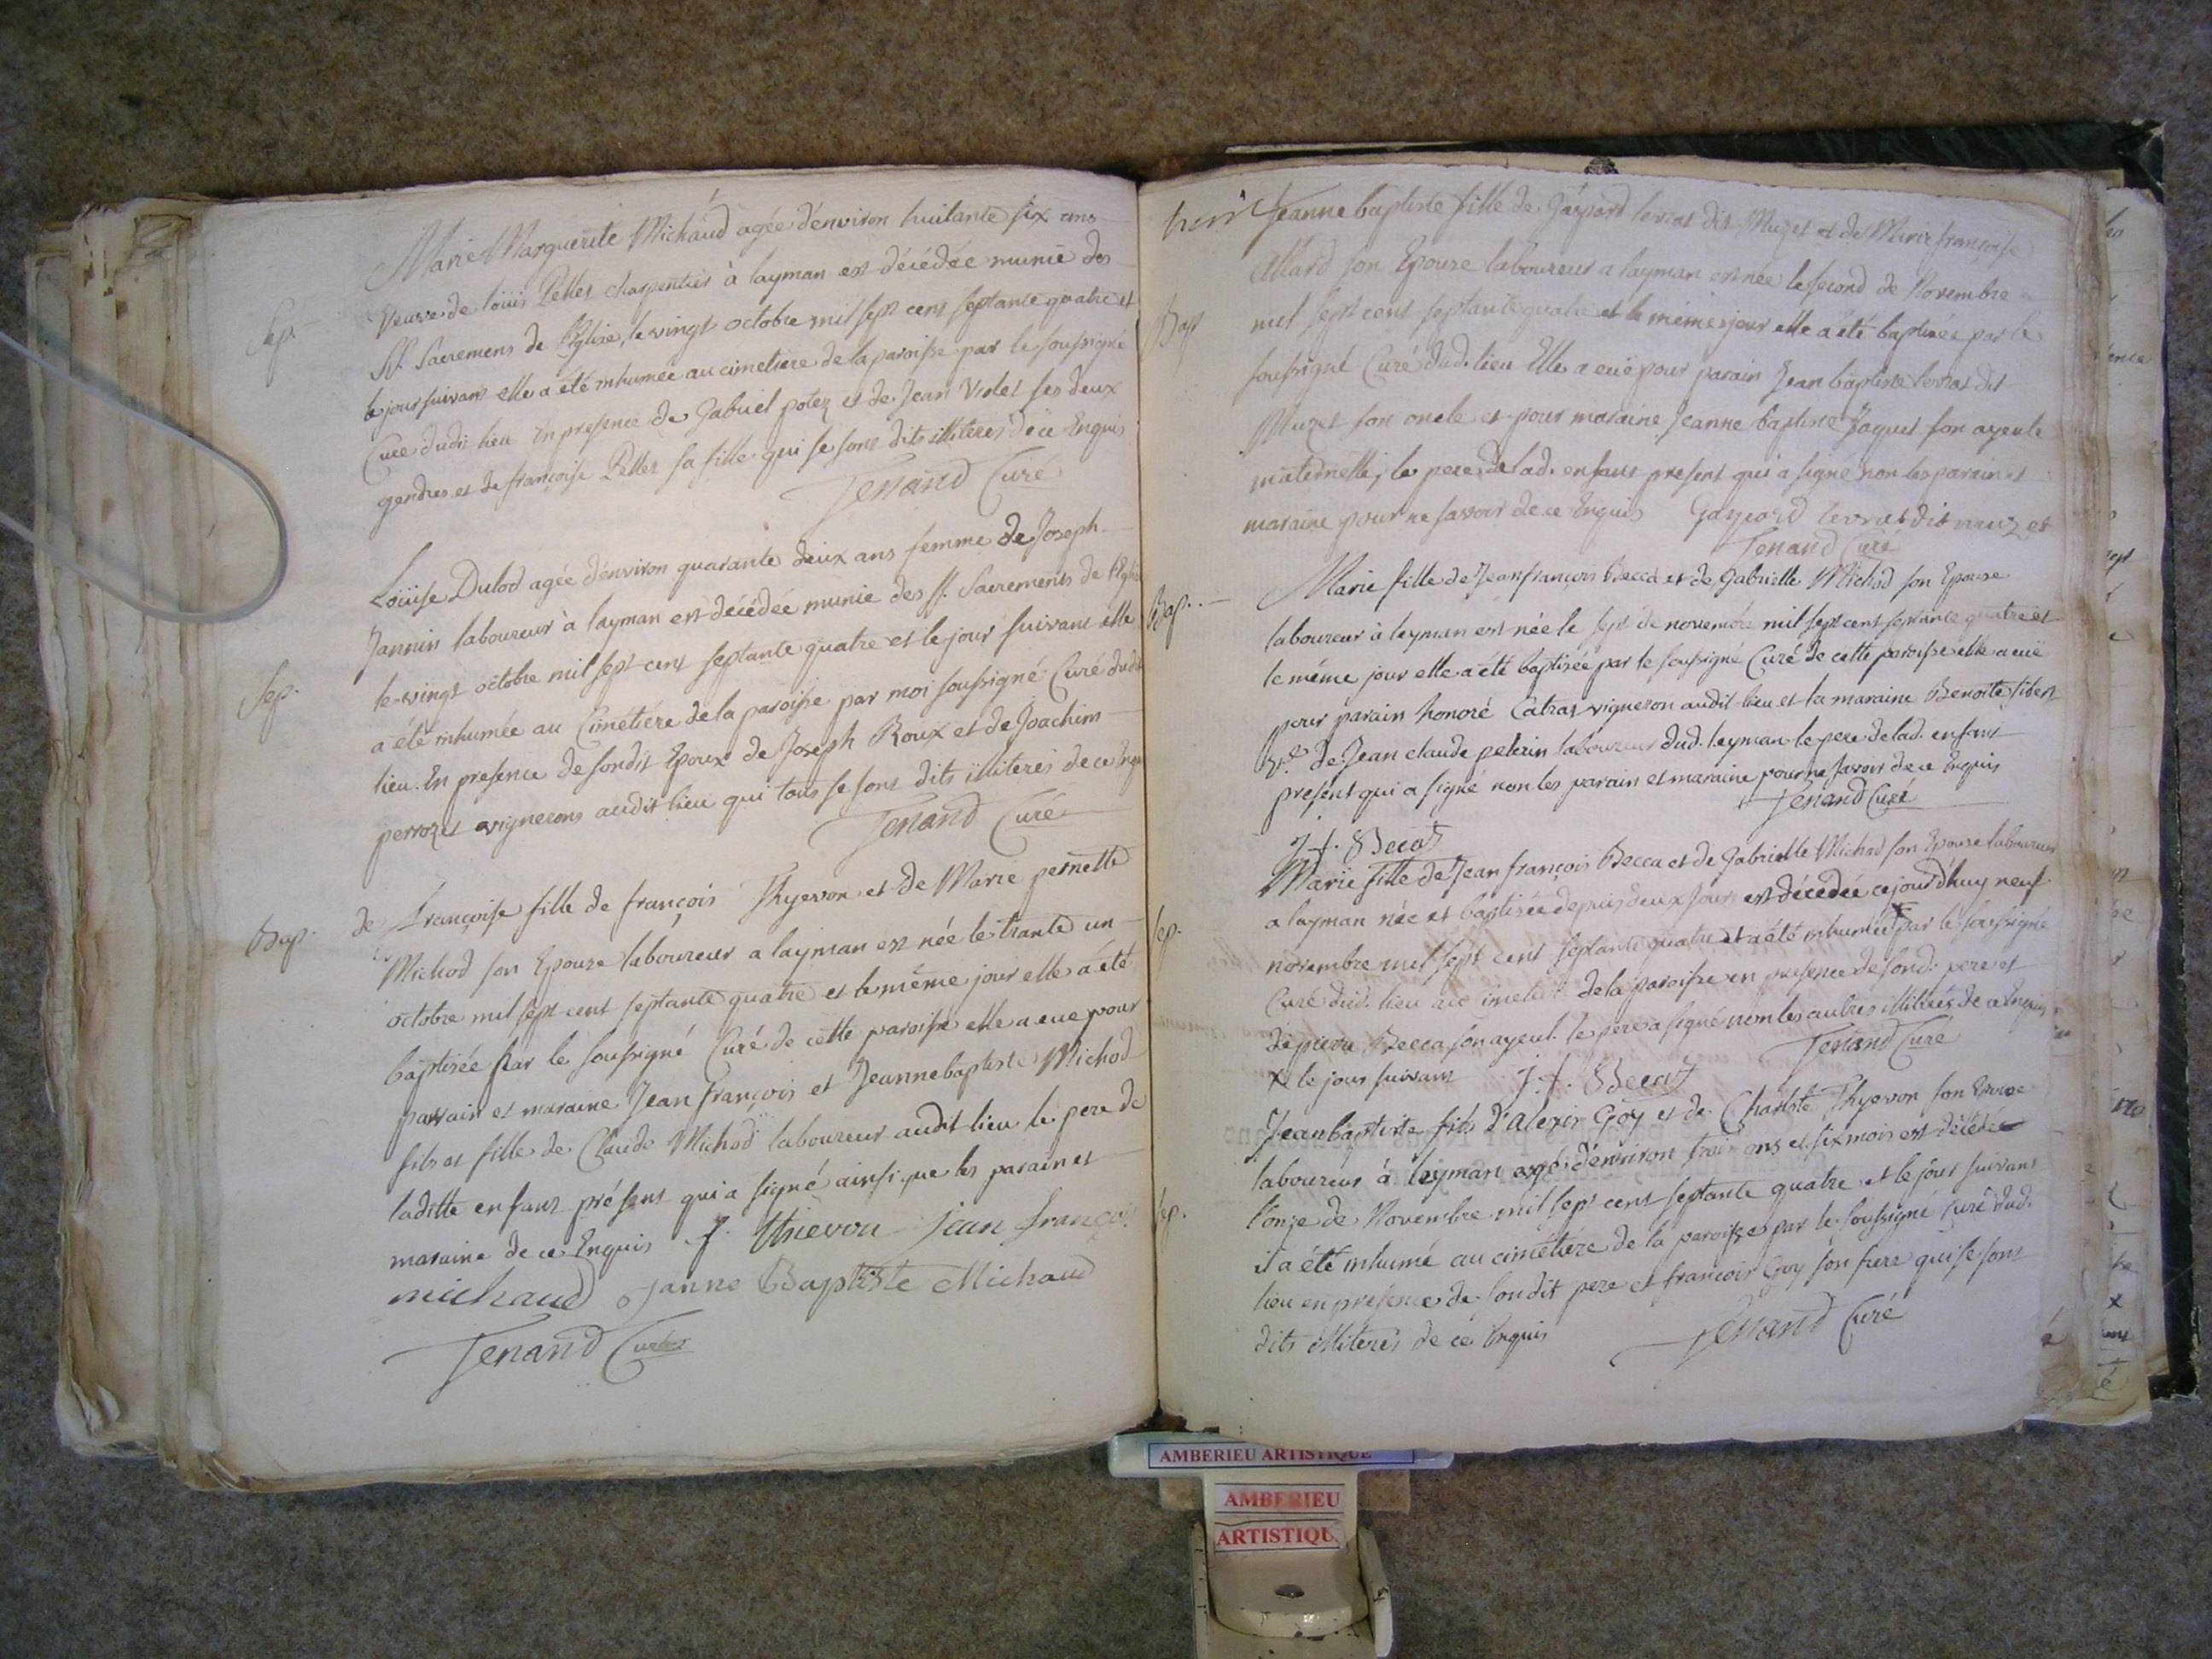 Marie Marguerite Michaud agée d'environ huitante six ans
Sep. Veuve de loüis Pellet charpentier à layman est décédée munie des
SS. Sacremens de l'Eglise, le vingt octobre mil sept cent septante quatre et
le jour suivant elle a été inhumée au cimetiere de la paroisse par le soussigné
Curé dudit lieu En presence de Gabriel potez et de Jean Violet ses deux
gendres et de françoise Pellet sa fille qui se sont dits illiteres de ce Enquis
Tenand Curé
Loüise Dulod agée d'environ quarante deux ans femme de Joseph
Jannin laboureur à layman est décédée munie des SS. Sacrements de l'Eglise
Sep. le vingt octobre mil sept cent septante quatre et le jour suivant elle
a été inhumée au Cimétiére de la paroisse par moi soussigné Curé dudit
lieu. En presence de sondit Epoux de Joseph Roux et de Joachim
perrozet vignerons audit lieu qui tous se sont dits illiterés de ce Enquis
Tenand Curé
Bap. de Françoise fille de françois Thyevon et de Marie pernette
Michod son Epouze laboureur a layman est née le trante un
octobre mil sept cent septante quatre et le même jour elle a été
baptisée par le soussigné Curé de cette paroisse elle a eue pour
parrain et maraine Jean françois et Jeanne baptiste Michod
fils et fille de Claude Michod laboureur audit lieu le pere de
laditte enfant présent qui a signé ainsi que les parain et
maraine de ce Enquis f. thievon Jean françois
michaud Janne Baptiste Michaud
Tenand Curé
Jeanne baptiste fille de Gaspard levrat dit Muzet et de Marie françoise
Allard son Epouze laboureur a layman est née le second de Novembre
Bap mil sept cent septante quatre et le meme jour elle a été baptisée par le
soussigné Curé dud. lieu Elle a eüe pour parain Jean baptiste levrat dit
Muzet son oncle et pour maraine Jeanne baptiste Jaquet son ayeule
maternelle, le pere de lad. enfant present qui a signé non les parain et
maraine pour ne savoir de ce Enquis Gaspard levrat dit muzet
Tenand Curé
Marie fille de Jean françois Becca et de Gabrielle Michod son Epouse
Bap. laboureur à leyman est née le sept de novembre mil sept cent septante quatre et
le méme jour elle a été baptisée par le soussigné Curé de cette paroisse elle a eüe
pour parain honoré Catras vigneron audit lieu et la maraine Benoite Sibert
Ve de Jean claude pelerin laboureur dud. leyman le pere de lad. enfant
present qui a signé non les parain et maraine pour ne savoir de ce Enquis
Tenand Curé
J. f. Becat
Marie fille de Jean françois Becca et de Gabrielle Michod son Epouse laboureur
a layman née et baptisée depuis deux jours est décédée ce jourd'huy neuf
Sep. novembre mil sept cent septante quatre et a été inhumée x par le soussigné
Curé dud. lieu au cimetiere de la paroisse en presence de sond. pere et
de pierre Becca son ayeul. le pere a signé non les autres illiterés de ce Enquis
Tenand Curé
x le jour suivant J. f. Becat
Jean baptiste fils d'alexis Goy et de Charlote Thyevon son Epouse
laboureur à leyman agé d'environ trois ans et six mois est décédé
Sep. l'onze de Novembre mil sept cent septante quatre et le jour suivant
il a été inhumé au cimétiére de la paroisse par le soussigné Curé dud.
lieu en présence de sondit pere et francois Goy son frere qui se sont
dits illiterés de ce Enquis Tenand Curé
AMBERIEU ARTISTIQUE
AMBERIEU
ARTISTIQU